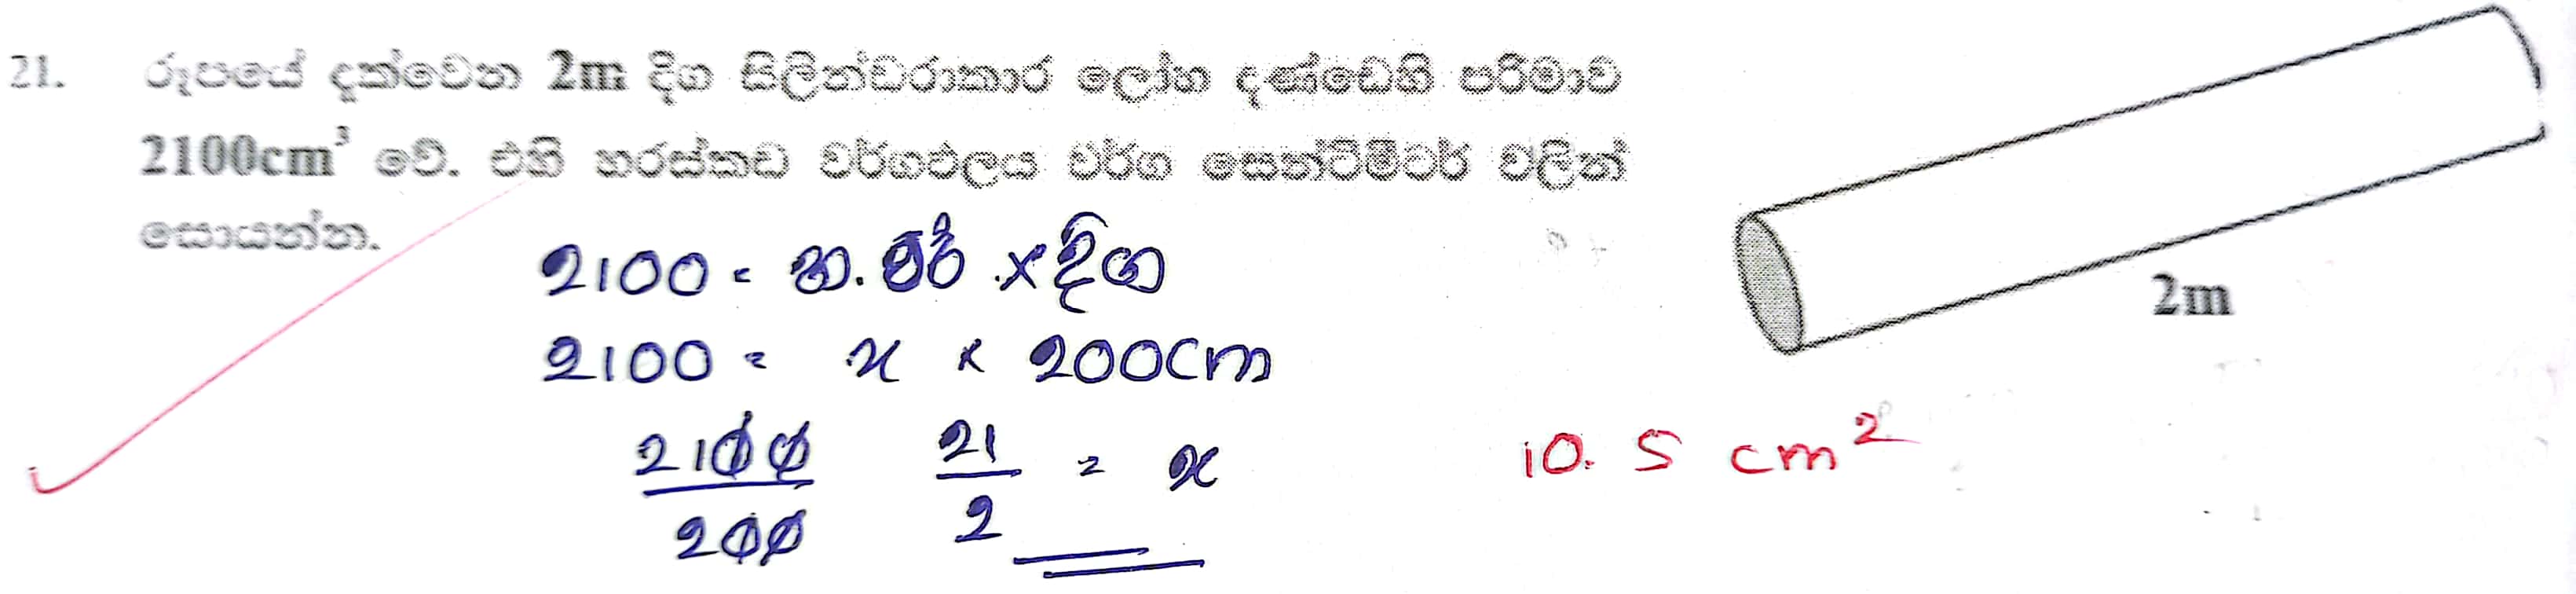 21. රූපයේ දැක්වෙන 2m දිග සිලින්ඩරාකාර ලෝහ දණ්ඩෙහි පරිමාව
2100cm³ වේ. එහි හරස්කඩ වර්ගඵලය වර්ග සෙන්ටිමීටර් වලින්
සොයන්න.
2100 = හ. × දිග
2100 = x × 200cm
2m
2100/200 21/2 = x
10.5 cm²